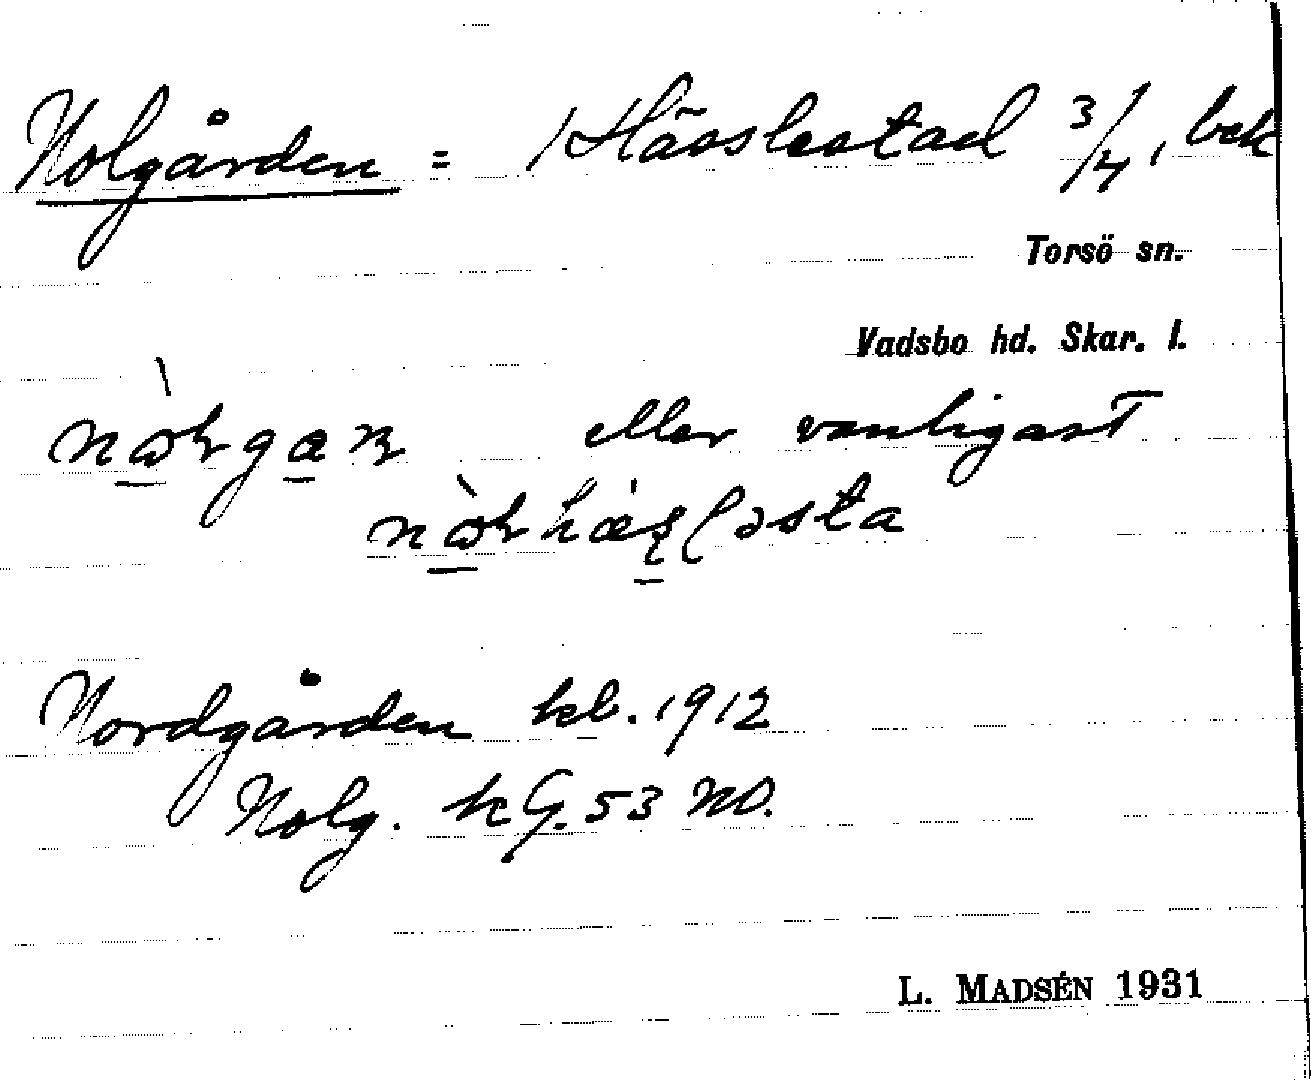 Nolgården = 1 Hässlestad 3/4, bek
Torsö sn.
Vadsbo hd. Skar. l.
eller vanligast
Nordgården kb. 1912
Nolg. k G. 53 NO.
L. MADSÉN 1931